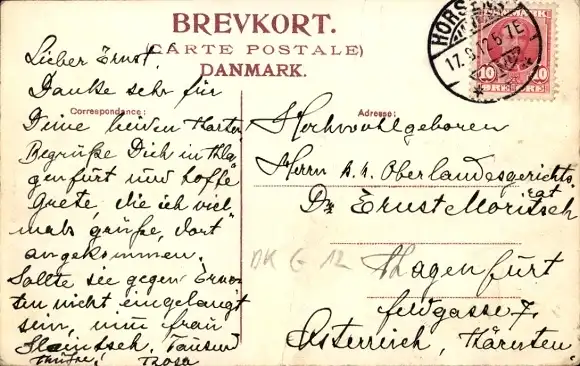 BREVKORT.
(CARTE POSTALE)
DANMARK.
HORSENS
17.9.12.5-7E
10 10
Correspondance:
Adresse:
Lieber Ernst!
Danke sehr für
Deine beiden Karten
Begrüße Dich in Kla
genfurt und hoffe
Grete, die ich viel
mals grüße, dort
angekommen.
Sollte sie gegen Erwar
ten nicht eingelangt
sein, nimm Frau
Tausend
Grüße! Rosa
Hochwohlgeboren
Herrn k. k. Oberlandesgerichts
rat
Dr Ernst Moritsch
Klagenfurt
Feldgasse 7.
Österreich, Kärnten.
DK G 12